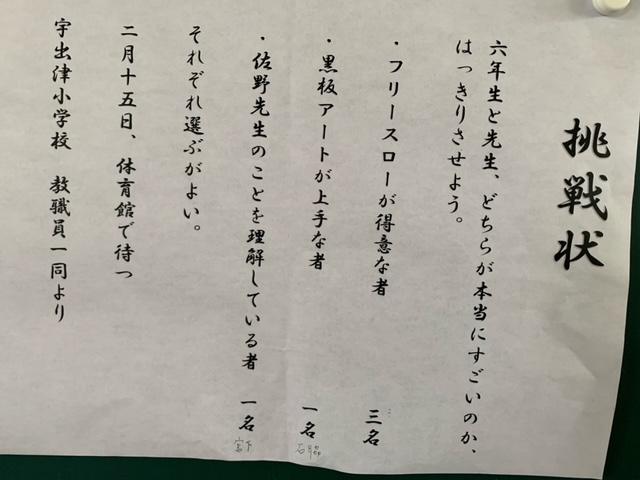 挑戦状
六年生と先生、どちらが本当にすごいのか、
はっきりさせよう。
・フリースローが得意な者 三名
・黒板アートが上手な者 一名
石脇
・佐野先生のことを理解している者 一名
宮下
それぞれ選ぶがよい。
二月十五日、体育館で待つ
宇出津小学校 教職員一同より